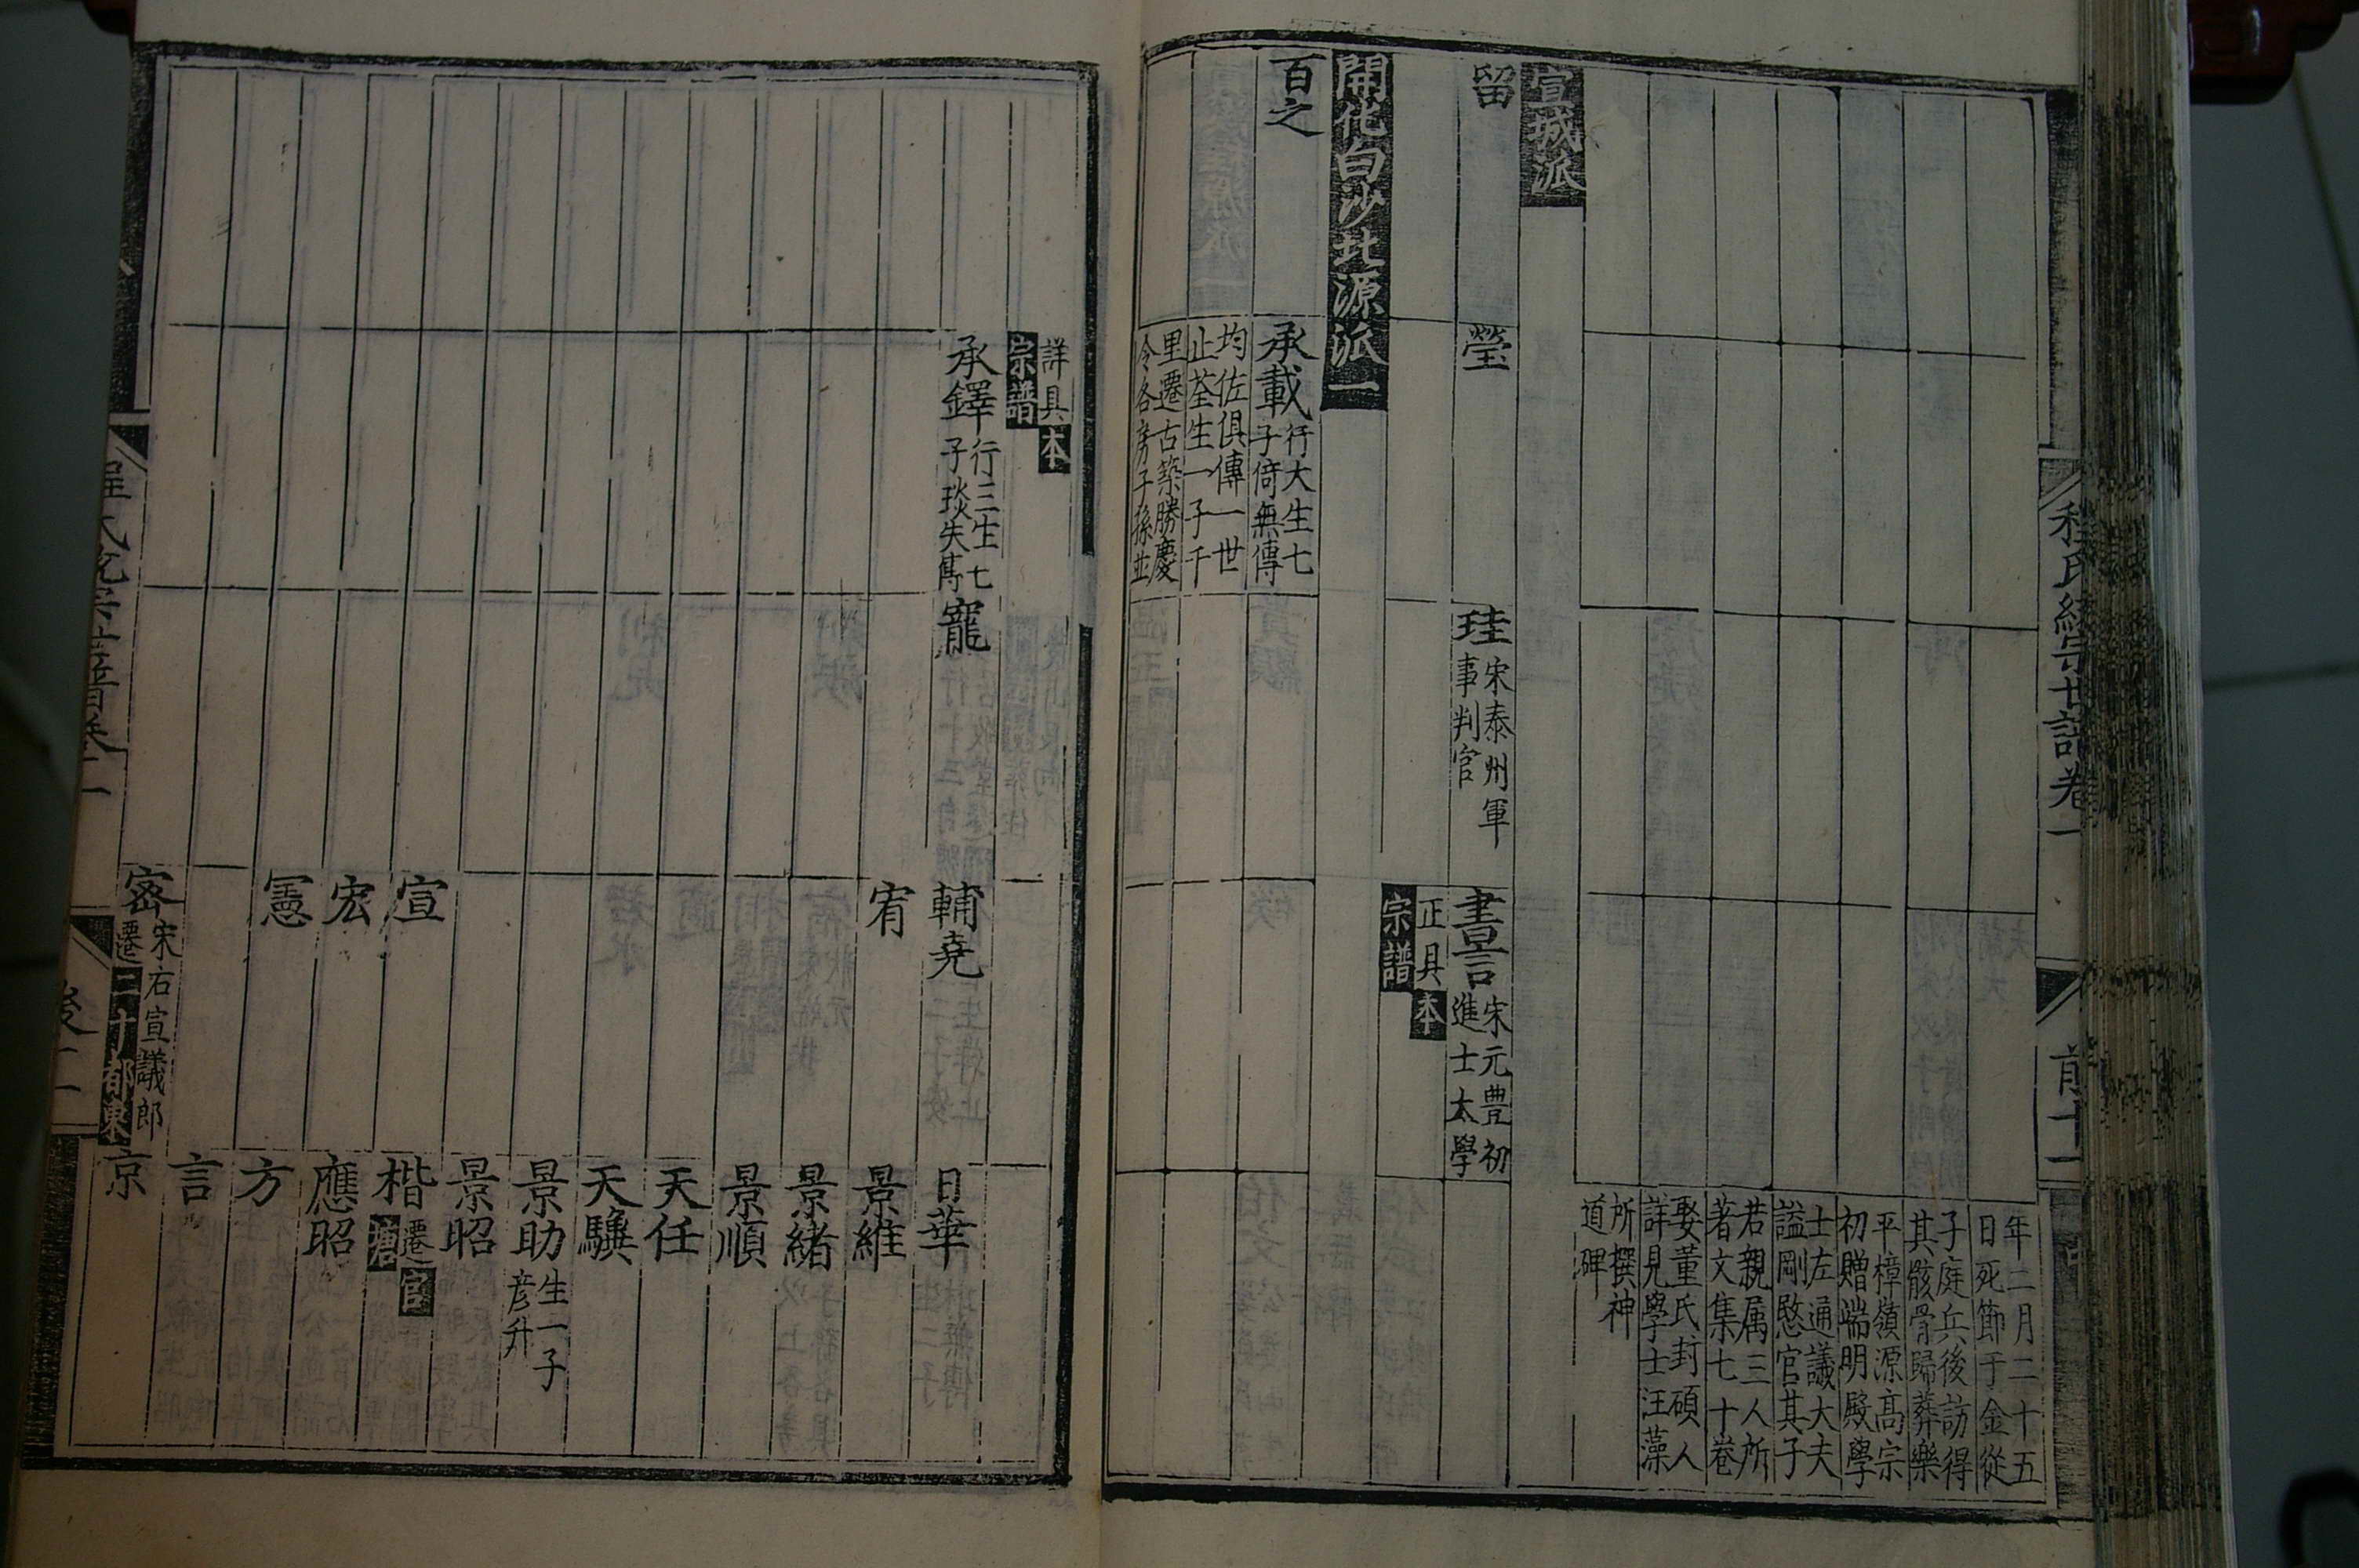 程氏統宗世譜卷一
前十一
年二月二十五
日死節于金從
子庭兵後訪得
其骸骨歸葬樂
平樟嶺源高宗
初贈端明殿學
士左通議大夫
諡剛愍官其子
若親属三人所
著文集七十卷
娶董氏封碩人
詳見學士汪藻
所撰神
道碑
宣城派
留
瑩
珪
宋泰州軍
事判官
書言
宋元豊初
進士太學
正具本
宗譜
開化白沙北源派一
百之
承載
行大生七
子倚無傳
均佐俱傳一世
止荃生一子千
里遷古築勝慶
冷各房子孫並
詳具本
宗譜
承鐸
行三生七
子琰失傳
寵
輔堯
日華
宥
景維
景緒
景順
天任
天驥
景助
生一子
彦升
景昭
宣
楷
遷官
塘
宏
應昭
憲
方
言
密
宋右宣議郎
遷二十都東
京
後二